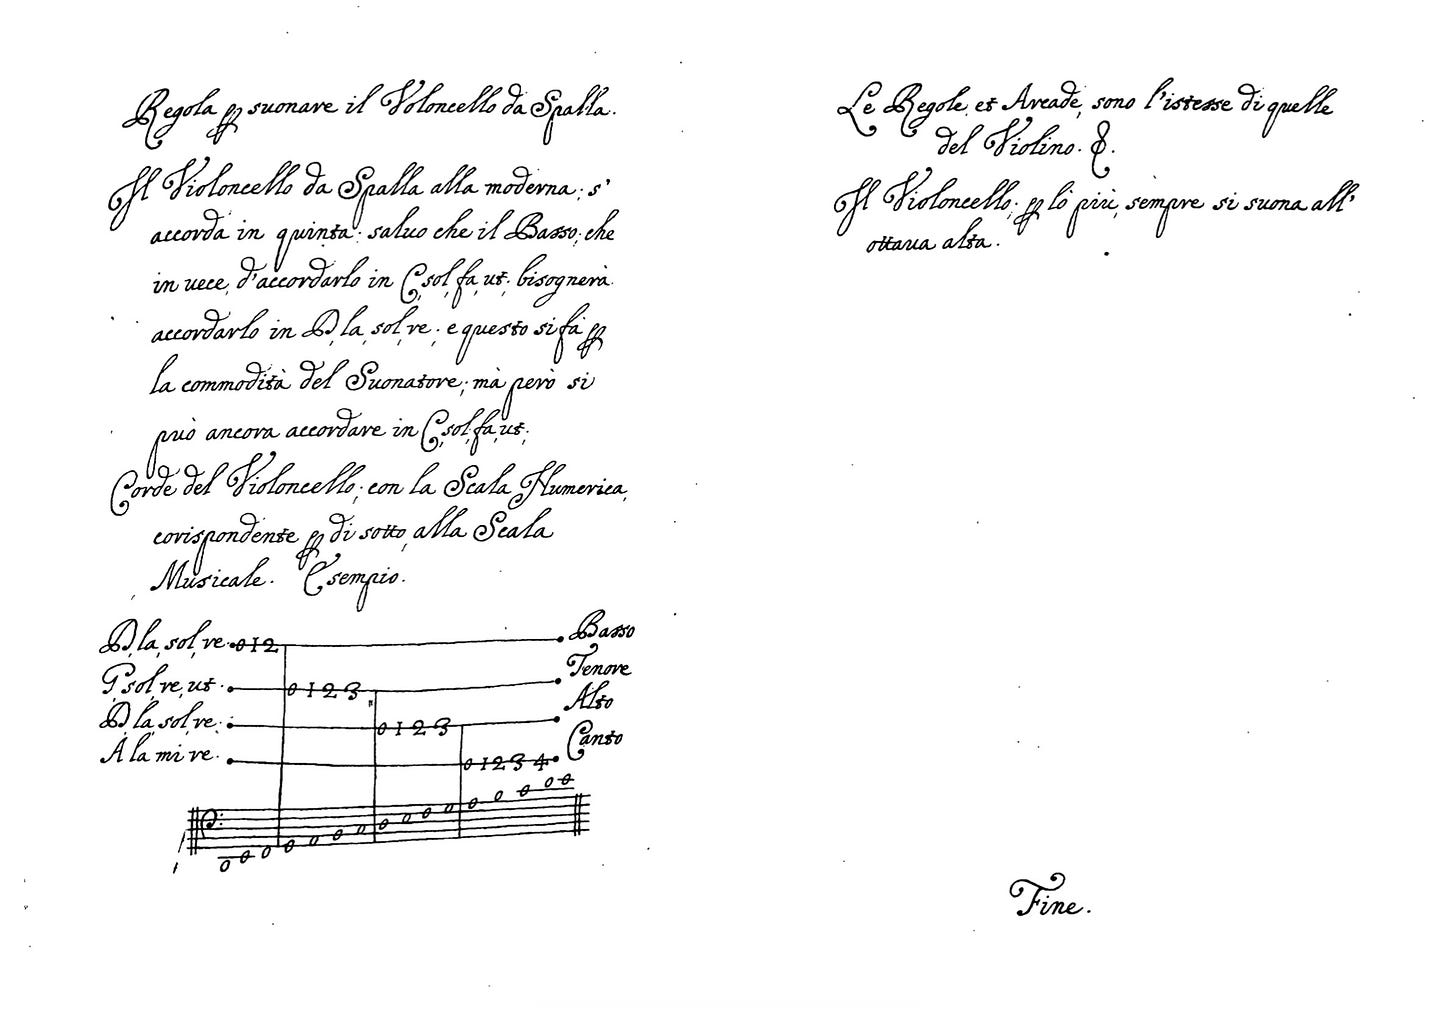 Regola ꝑ suonare il Voloncello da Spalla.
Il Violoncello da Spalla alla moderna; s'
accorda in quinta; saluo che il Basso, che
in uece, d'accordarlo in C, sol, fa, ut; bisognerà
accordarlo in D, la, sol, re; e questo si fà ꝑ
la commodità del Suonatore; mà però si
può ancora accordare in C, sol, fa, ut;
Corde del Violoncello; con la Scala Numerica,
corispondente ꝑ di sotto, alla Scala
Musicale. Esempio.
D, la, sol, re. 0 1 2 Basso
G, sol, re, ut. 0 1 2 3 Tenore
D, la, sol, re. 0 1 2 3 Alto
A la mi re. 0 1 2 3 4 Canto
Le Regole, et Arcade, sono l'istesse di quelle
del Violino. &.
Il Violoncello; ꝑ lò più, sempre si suona all'
ottaua alta.
Fine.